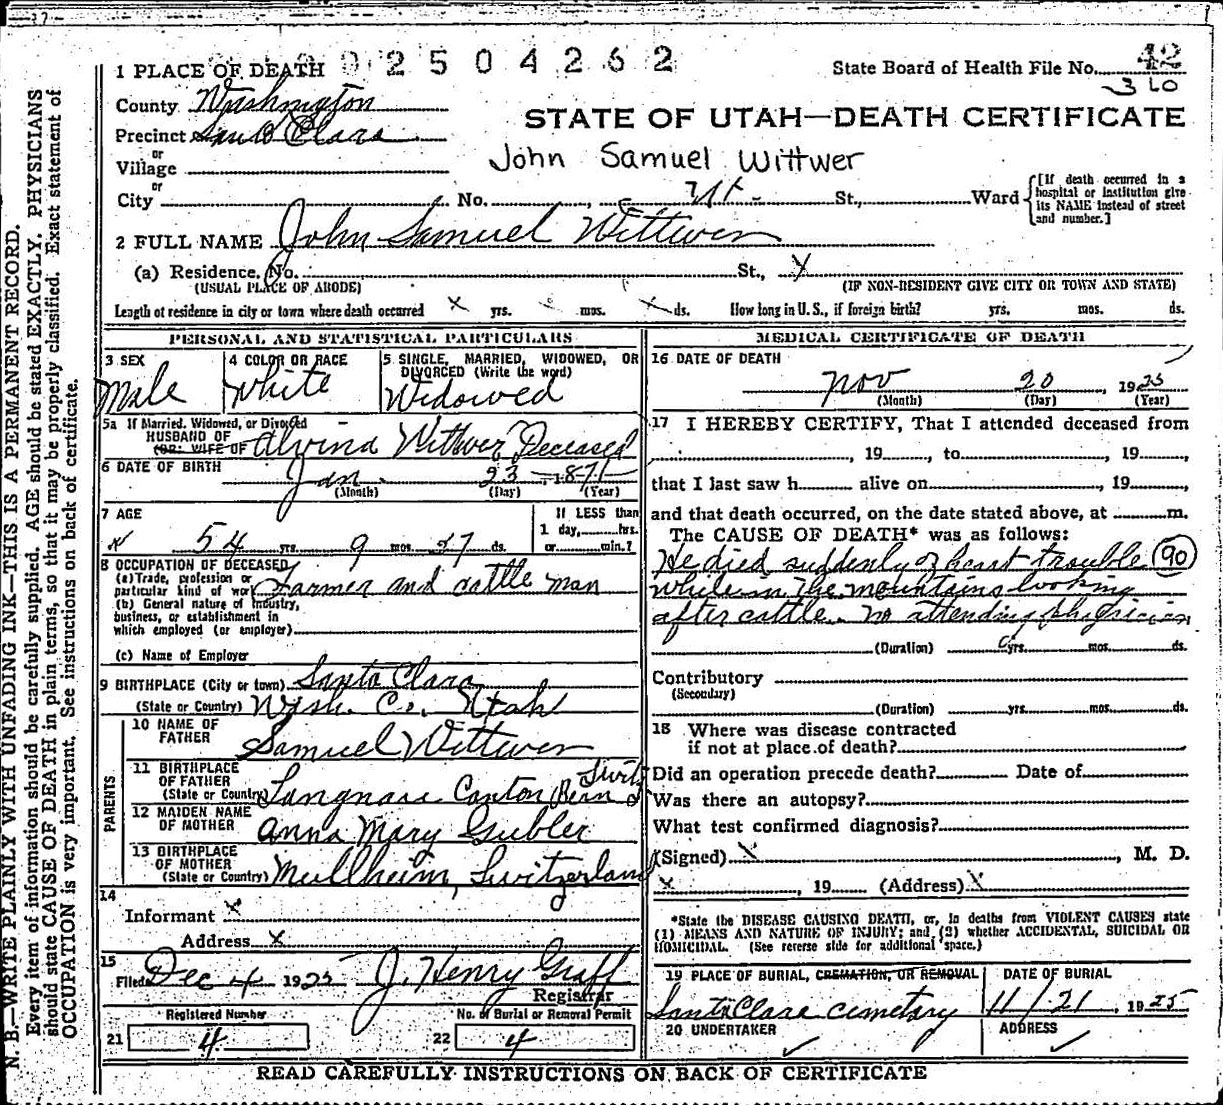 2504262
1 PLACE OF DEATH
State Board of Health File No. 42
360
County Washington
STATE OF UTAH—DEATH CERTIFICATE
Precinct Santa Clara
or
Village
John Samuel Wittwer
or
City No. , St., Ward
[If death occurred in a hospital or institution give its NAME instead of street and number.]
2 FULL NAME John Samuel Wittwer
(a) Residence. No. St., X
(USUAL PLACE OF ABODE) (IF NON-RESIDENT GIVE CITY OR TOWN AND STATE)
Length of residence in city or town where death occurred x yrs. x mos. x ds. How long in U. S., if foreign birth? yrs. mos. ds.
PERSONAL AND STATISTICAL PARTICULARS
3 SEX 4 COLOR OR RACE 5 SINGLE, MARRIED, WIDOWED, OR
DIVORCED (Write the word)
Male White Widowed
5a If Married, Widowed, or Divorced
HUSBAND OF
(OR) WIFE OF Alvina Wittwer Deceased
6 DATE OF BIRTH Jan. 23 - 1871
(Month) (Day) (Year)
7 AGE If LESS than
1 day, hrs.
54 yrs. 9 mos. 27 ds. or min.?
8 OCCUPATION OF DECEASED
(a) Trade, profession or
particular kind of work Farmer and cattle man
(b) General nature of industry,
business, or establishment in
which employed (or employer)
(c) Name of Employer
9 BIRTHPLACE (City or town) Santa Clara
(State or Country) Wash. Co. Utah
PARENTS
10 NAME OF
FATHER Samuel Wittwer
11 BIRTHPLACE
OF FATHER
(State or Country) Langnau Canton Bern Switz
12 MAIDEN NAME
OF MOTHER Anna Mary Gubler
13 BIRTHPLACE
OF MOTHER
(State or Country) Mullheim, Switzerland
14
Informant x
Address x
15
Filed Dec 4 1925 J. Henry Graff
Registrar
Registered Number No. of Burial or Removal Permit
21 4 22 4
MEDICAL CERTIFICATE OF DEATH
16 DATE OF DEATH
Nov 20, 1925
(Month) (Day) (Year)
17 I HEREBY CERTIFY, That I attended deceased from
, 19 , to , 19 ,
that I last saw h alive on , 19 ,
and that death occurred, on the date stated above, at m.
The CAUSE OF DEATH* was as follows:
He died suddenly of heart trouble 90
while in the mountains looking
after cattle. no attending physician
(Duration) yrs. mos. ds.
Contributory
(Secondary)
(Duration) yrs. mos. ds.
18 Where was disease contracted
if not at place of death?
Did an operation precede death? Date of
Was there an autopsy?
What test confirmed diagnosis?
(Signed) X , M. D.
x , 19 (Address) X
*State the DISEASE CAUSING DEATH, or, in deaths from VIOLENT CAUSES state
(1) MEANS AND NATURE OF INJURY; and (2) whether ACCIDENTAL, SUICIDAL OR
HOMICIDAL. (See reverse side for additional space.)
19 PLACE OF BURIAL, CREMATION, OR REMOVAL DATE OF BURIAL
Santa Clara cemetary 11/21, 1925
20 UNDERTAKER ADDRESS
✓ ✓
READ CAREFULLY INSTRUCTIONS ON BACK OF CERTIFICATE
N. B.—WRITE PLAINLY WITH UNFADING INK—THIS IS A PERMANENT RECORD.
Every item of information should be carefully supplied. AGE should be stated EXACTLY. PHYSICIANS
should state CAUSE OF DEATH in plain terms, so that it may be properly classified. Exact statement of
OCCUPATION is very important. See instructions on back of certificate.